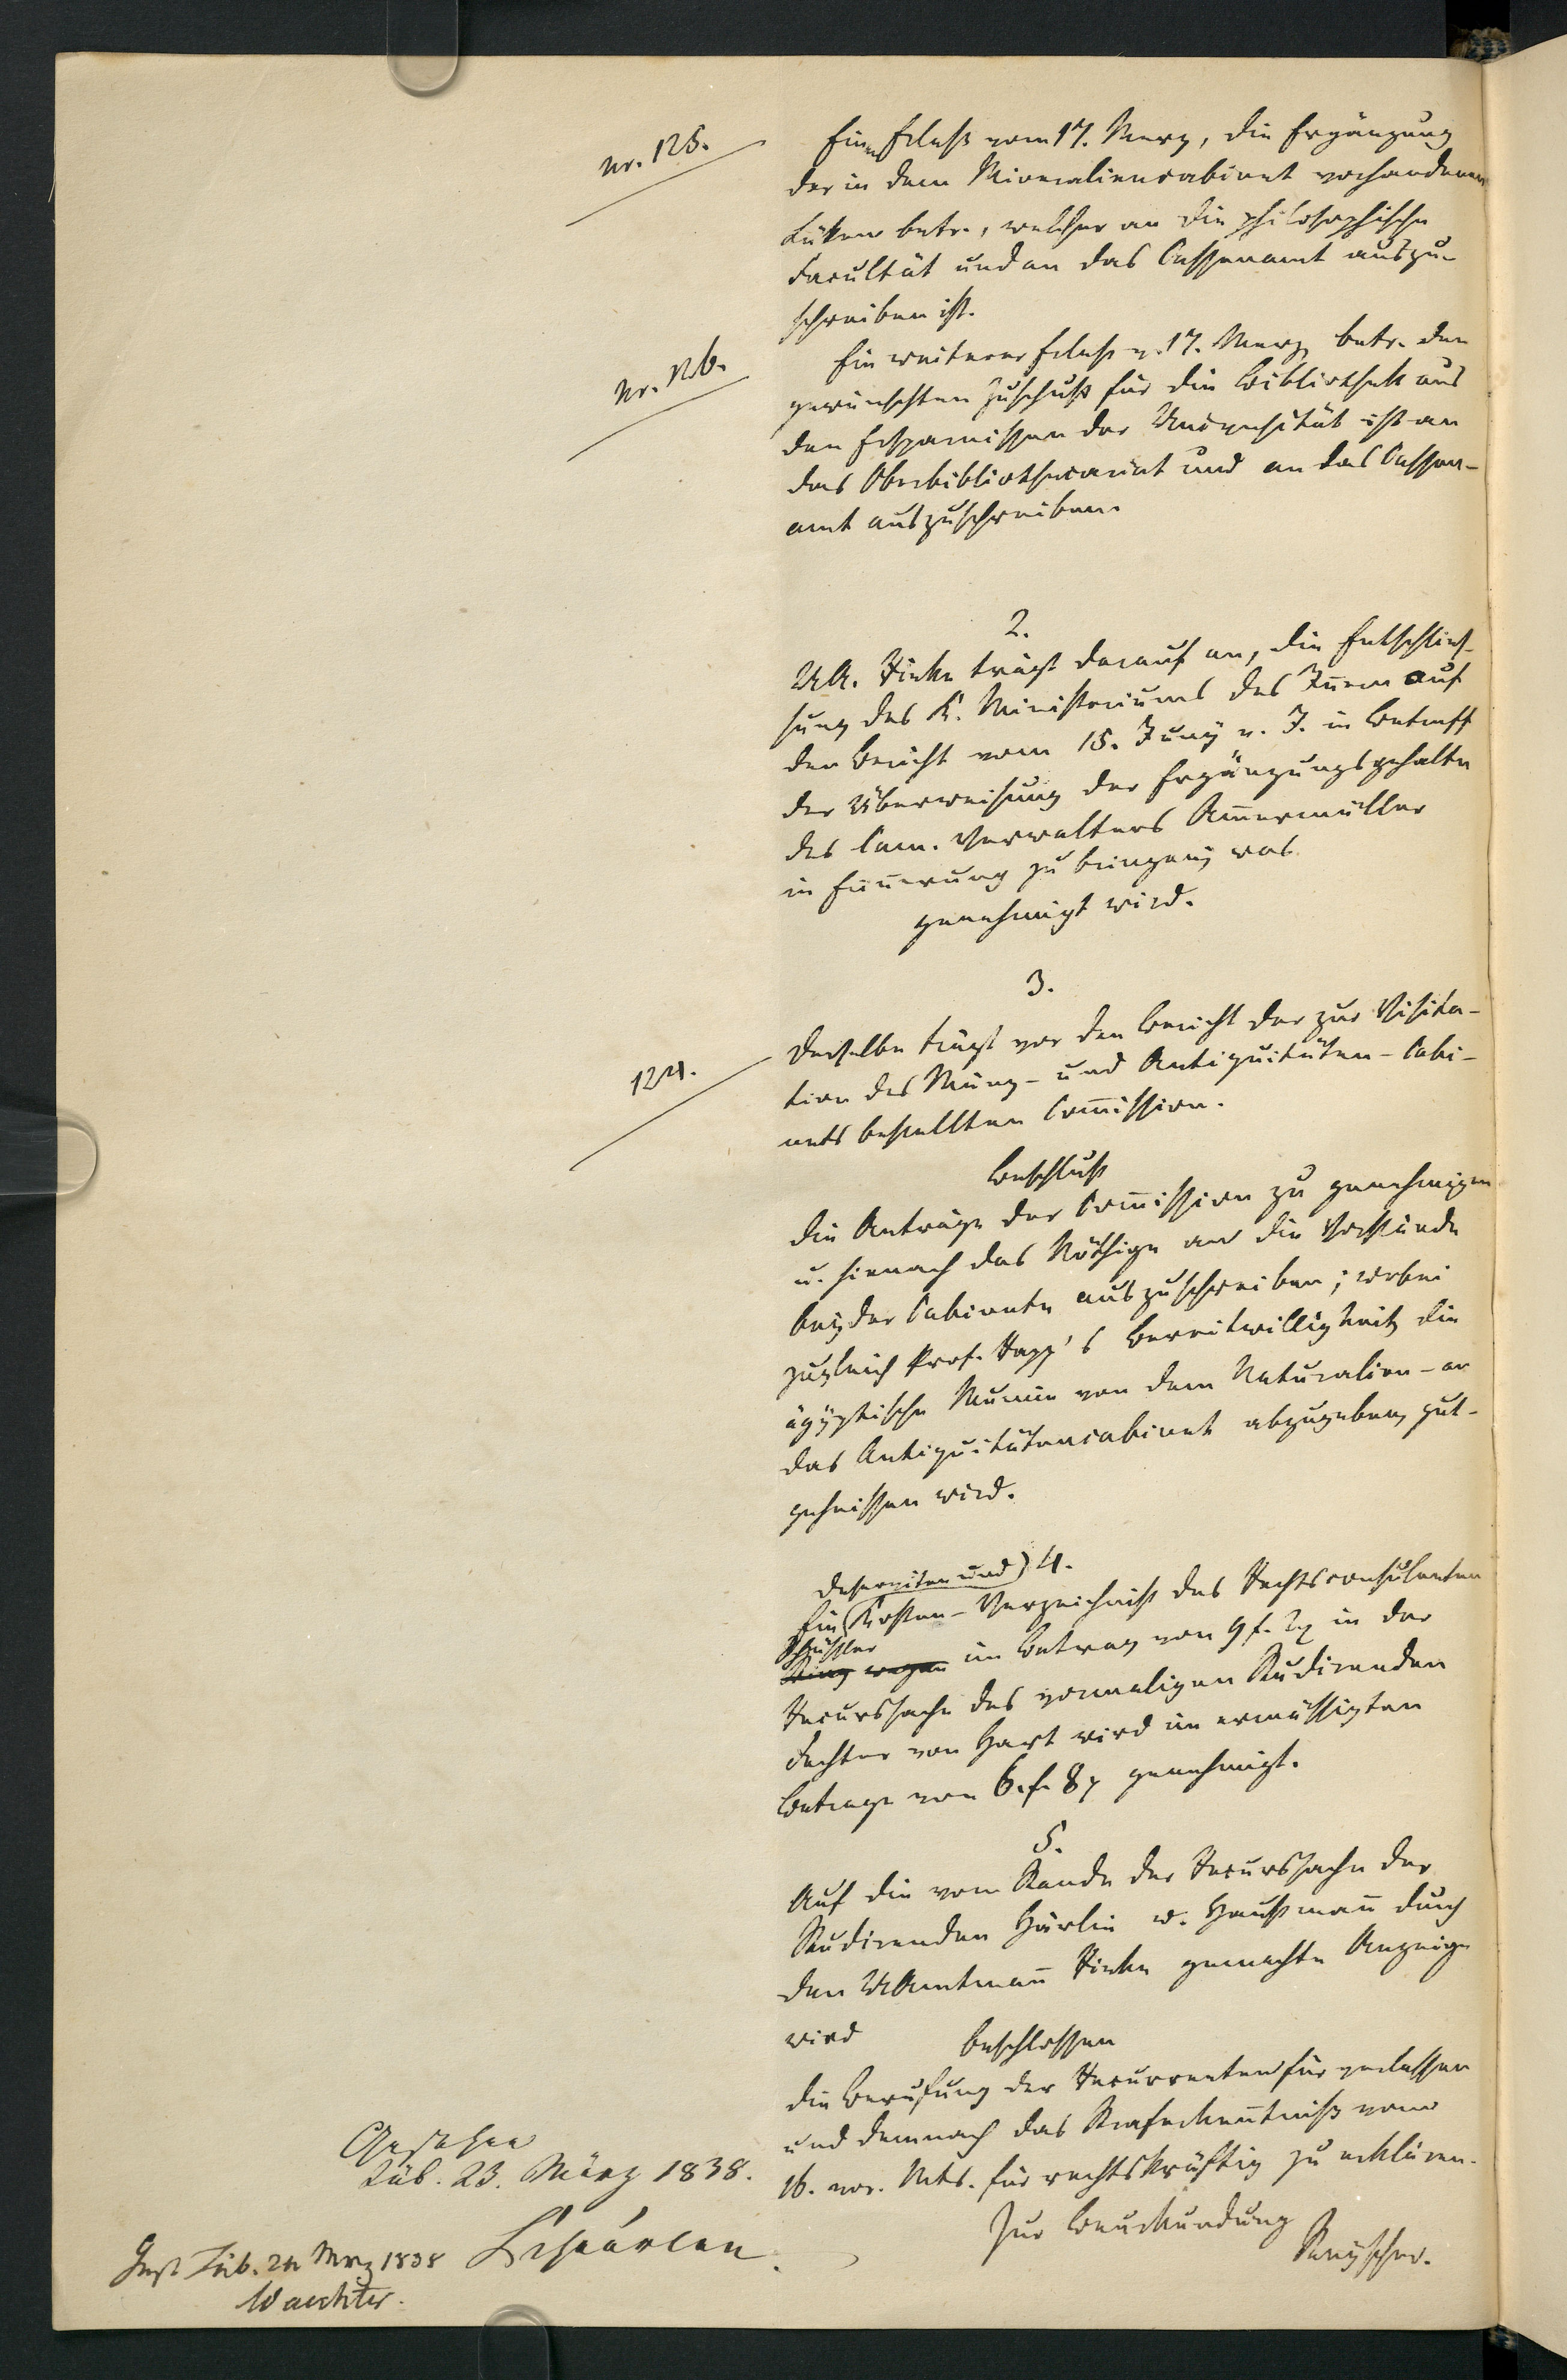 Nr. 125.
Einen Erlaß vom 17. Merz, die Ergänzung
der in dem Mineraliencabinet vorhandenen
Lüken betr., welcher an die philosophische
Facultät und an das Cassenamt auszu-
schreiben ist.
Nr. 126.
Ein weiterer Erlaß v. 17. Merz betr. den
gewünschten Zuschuß für die Bibliothek aus
den Ersparnissen der Universität ist an
das Oberbibliothecariat und an das Cassen-
amt auszuschreiben.
2.
UA. trägt darauf an, die Entschlies-
sung des K. Ministeriums des Innern auf
den Bericht vom 15. Juny v. J. in Betreff
der Überweisung der Ergänzungsgehalte
des Cam. Verwalters Ammermüller
in Erinnerung zu bringen, was
genehmigt wird.
3.
124.
Derselbe trägt vor den Bericht der zur Visita-
tion des Münz- und Antiquitäten-Cabi-
nets bestellten Com̅ission.
Beschluß
die Anträge der Com̅ission zu genehmigen
u. hienach das Nöthige an die Vorstände
beyder Cabinete auszuschreiben; wobei
zugleich Prof. Rapp's Bereitwilligkeit, die
ägyptische Mumie von dem Naturalien- an
das Antiquitätencabinet abzugeben, gut-
geheissen wird.
4.
Deserviten und
Ein Kosten-Verzeichniß des Rechtsconsulenten
Schüssler
wegen im Betrag von 9 f. in der
Recurssache des vormaligen Studirenden
Fechter von Hart wird im ermässigten
Betrage von 6. f. 8 x genehmigt.
5.
Auf die vom Stande der Recurssache der
Studirenden Härlin u. Haußman̅ durch
den UAmtman̅ gemachte Anzeige
wird beschlossen
die Berufung der Recurrenten für verlassen
und demnach das Straferken̅tniß vom
16. vor. Mts. für rechtskräftig zu erklären.
Zur Beurkundung
Reyscher.
Gesehen
Tüb. 23. März 1838.
Scheurlen.
Ges. Tüb. 24 Mrz 1838
Waechter.